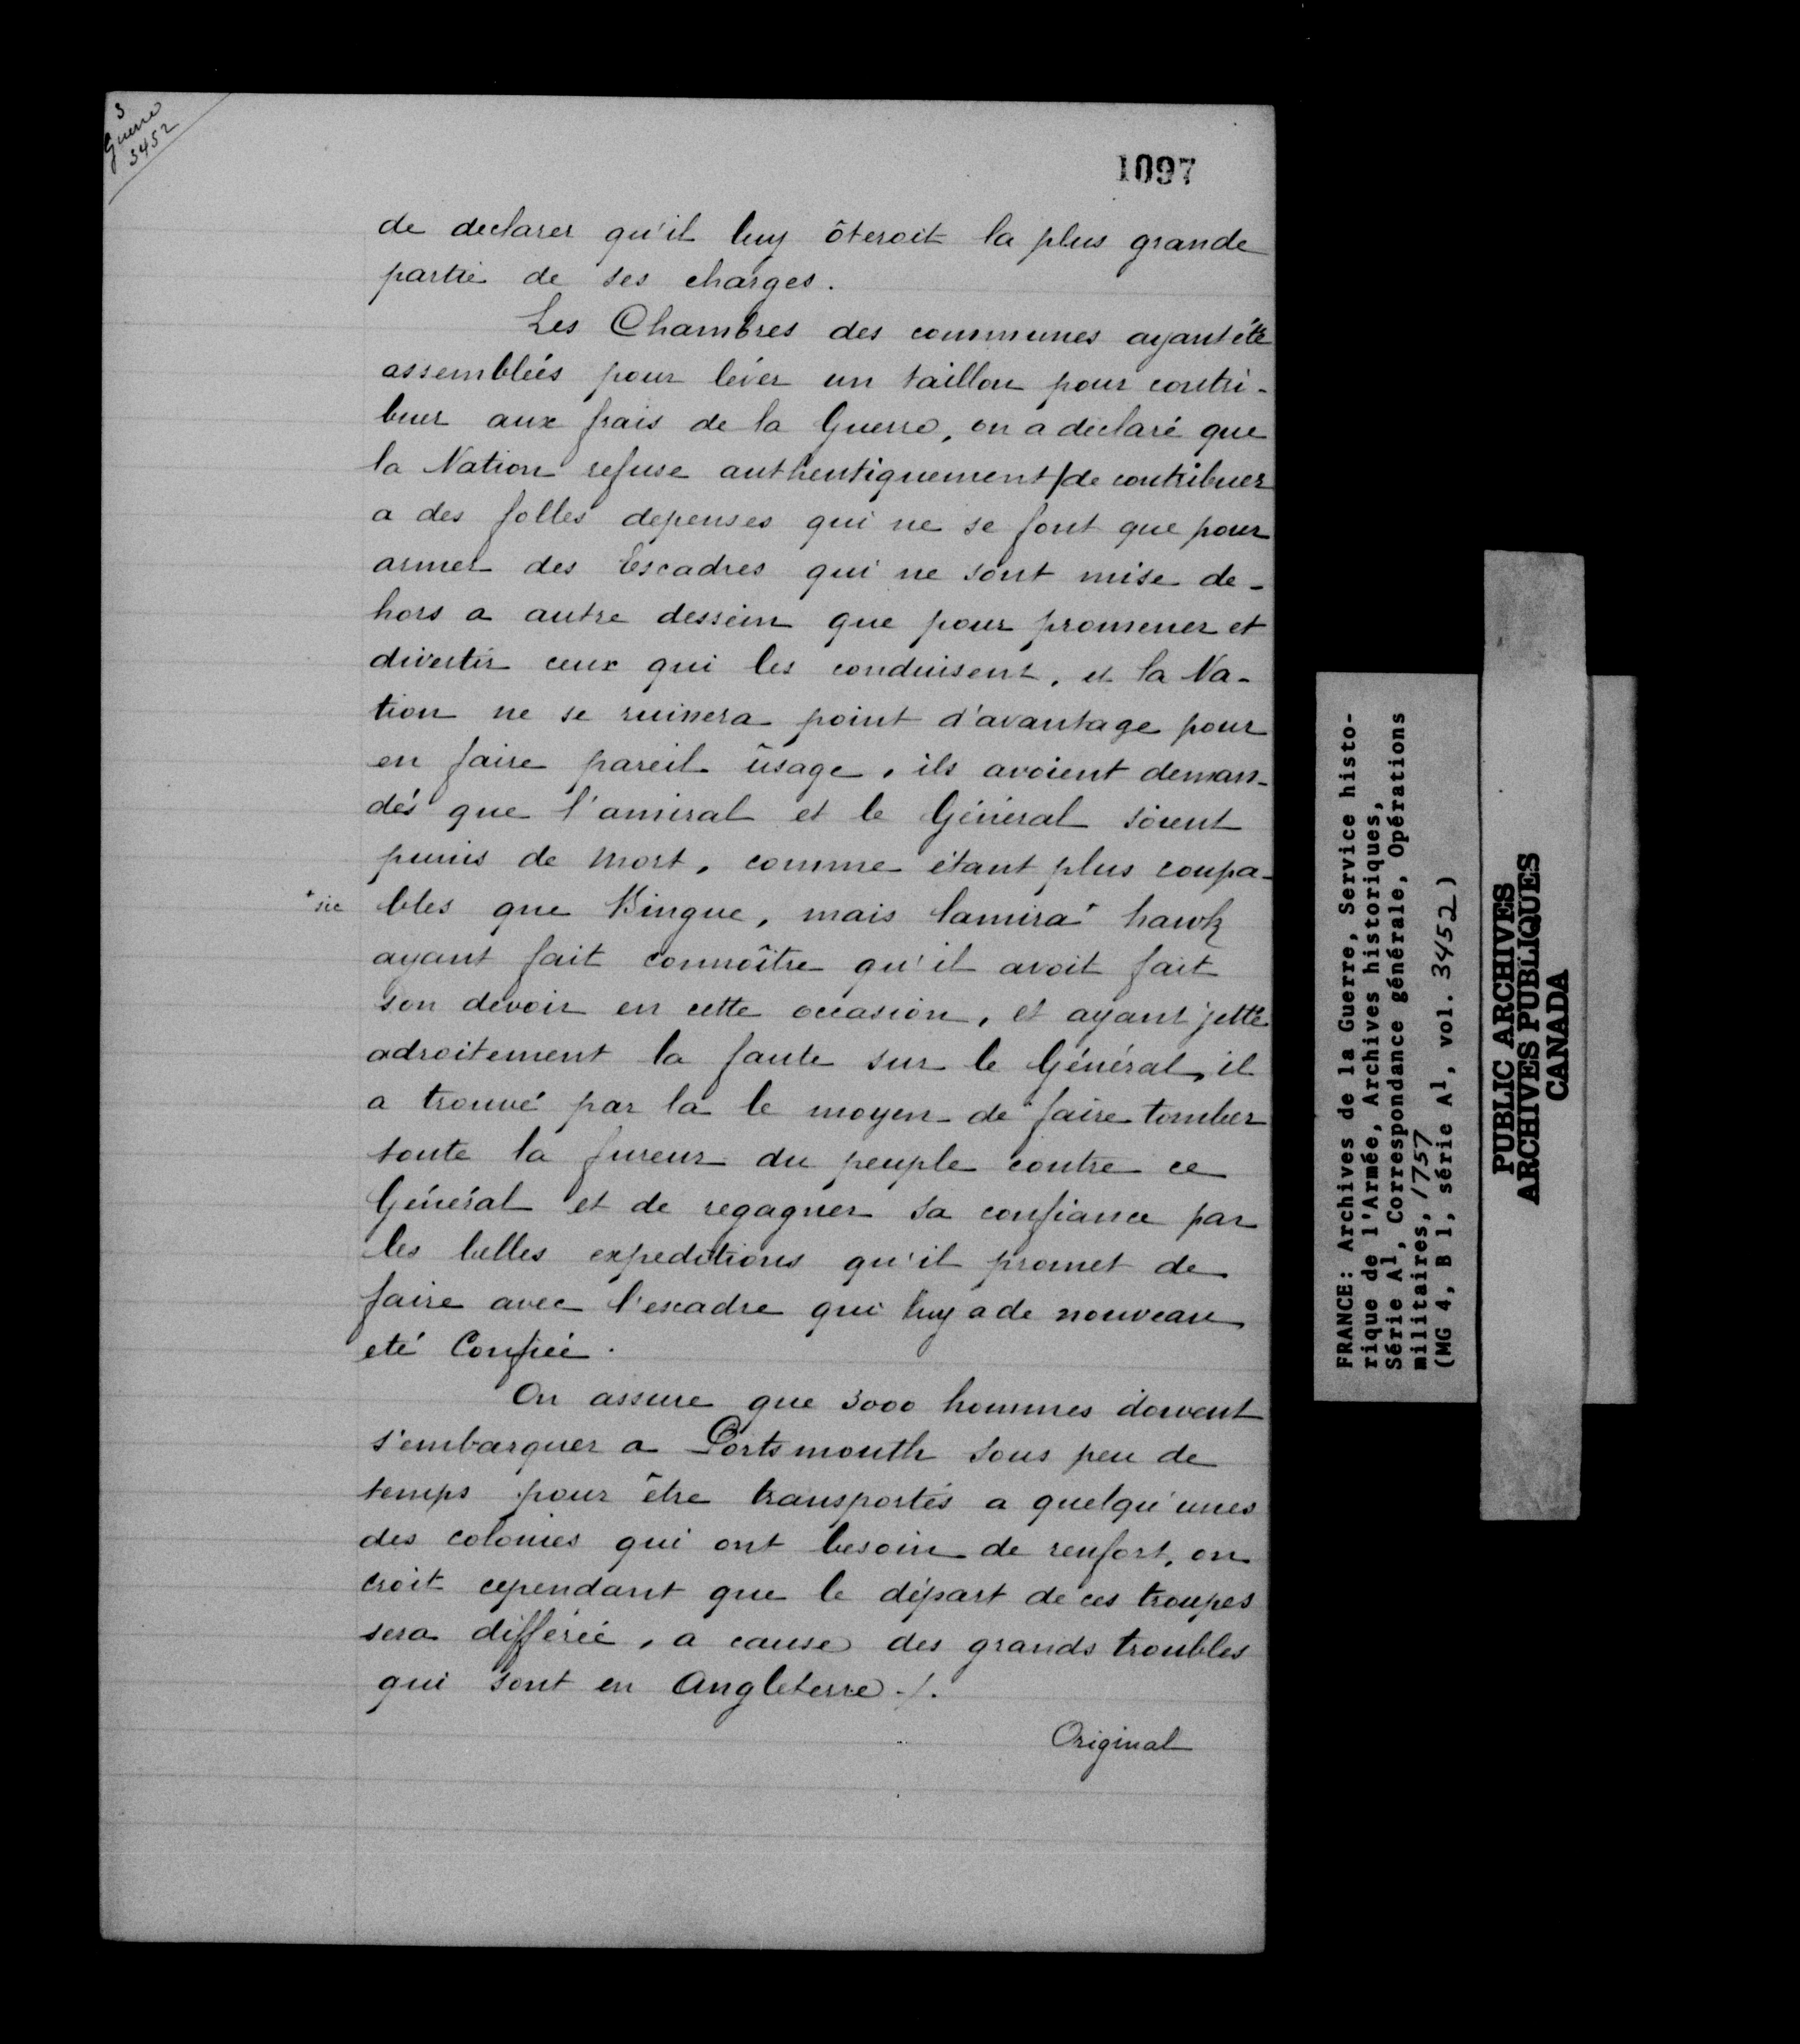 3
Guerre
3452
1097
de declarer qu'il luy ôteroit la plus grande
partie de ses charges.
Les Chambres des communes ayant été
assemblées pour léver un taillon pour contri-
buer aux frais de la Guerre, on a déclaré que
la Nation refuse authentiquement/de contribuer
a des folles depenses qui ne se font que pour
armer des Escadres qui ne sont mise de-
hors a autre dessein que pour promener et
divertir ceux qui les conduisent, et la Na-
tion ne se ruinera point d'avantage pour
en faire pareil usage, ils avoient deman-
dés que l'amiral et le Général soient
punis de mort, comme étant plus coupa-
* sic bles que Bingue, mais lamiral hawk
ayant fait connoître qu'il avoit fait
son devoir en cette occasion, et ayant jetté
adroitement la faute sur le Général, il
a trouvé par la le moyen de faire tomber
toute la fureur du peuple contre ce
Général et de regagner sa confiance par
les belles expeditions qu'il promet de
faire avec l'escadre qui luy a de nouveau
eté Confiée.
On assure que 3000 hommes doivent
s'embarquer a Portsmouth sous peu de
temps pour être transportés a quelqu'unes
des colonies qui ont besoin de renfort, on
croit cependant que le départ de ces troupes
sera différée, a cause des grands troubles
qui sont en Angleterre ./.
Original
FRANCE: Archives de la Guerre, Service histo-
rique de l'Armée, Archives historiques,
Série A1, Correspondance générale, Opérations
militaires, /757
(MG 4, B 1, série A1, vol. 3452)
PUBLIC ARCHIVES
ARCHIVES PUBLIQUES
CANADA